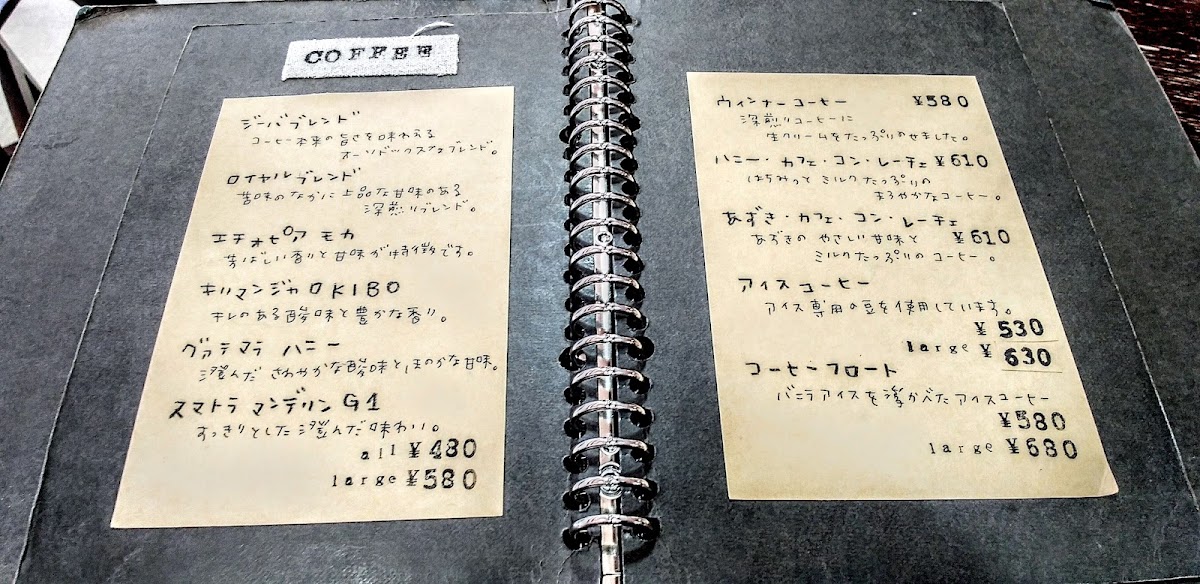 COFFEE
ジーバブレンド
コーヒー本来の旨さを味わえる
オーソドックスなブレンド。
ロイヤルブレンド
苦味のなかに上品な甘味のある
深煎りブレンド。
エチオピア モカ
芳ばしい香りと甘味が特徴です。
キリマンジャロ KIBO
キレのある酸味と豊かな香り。
グァテマラ ハニー
澄んだ さわやかな酸味とほのかな甘味。
スマトラ マンデリン G1
すっきりとした澄んだ味わい。
all ¥480
large ¥580
ウィンナーコーヒー ¥580
深煎りコーヒーに
生クリームをたっぷりのせました。
ハニー・カフェ・コン・レーチェ ¥610
はちみつと ミルクたっぷりの
まろやかなコーヒー。
あずき・カフェ・コン・レーチェ
あずきの やさしい甘味と ¥610
ミルクたっぷりの コーヒー。
アイスコーヒー
アイス専用の豆を使用しています。
¥530
large ¥630
コーヒーフロート
バニラアイスを浮かべたアイスコーヒー
¥580
large ¥680